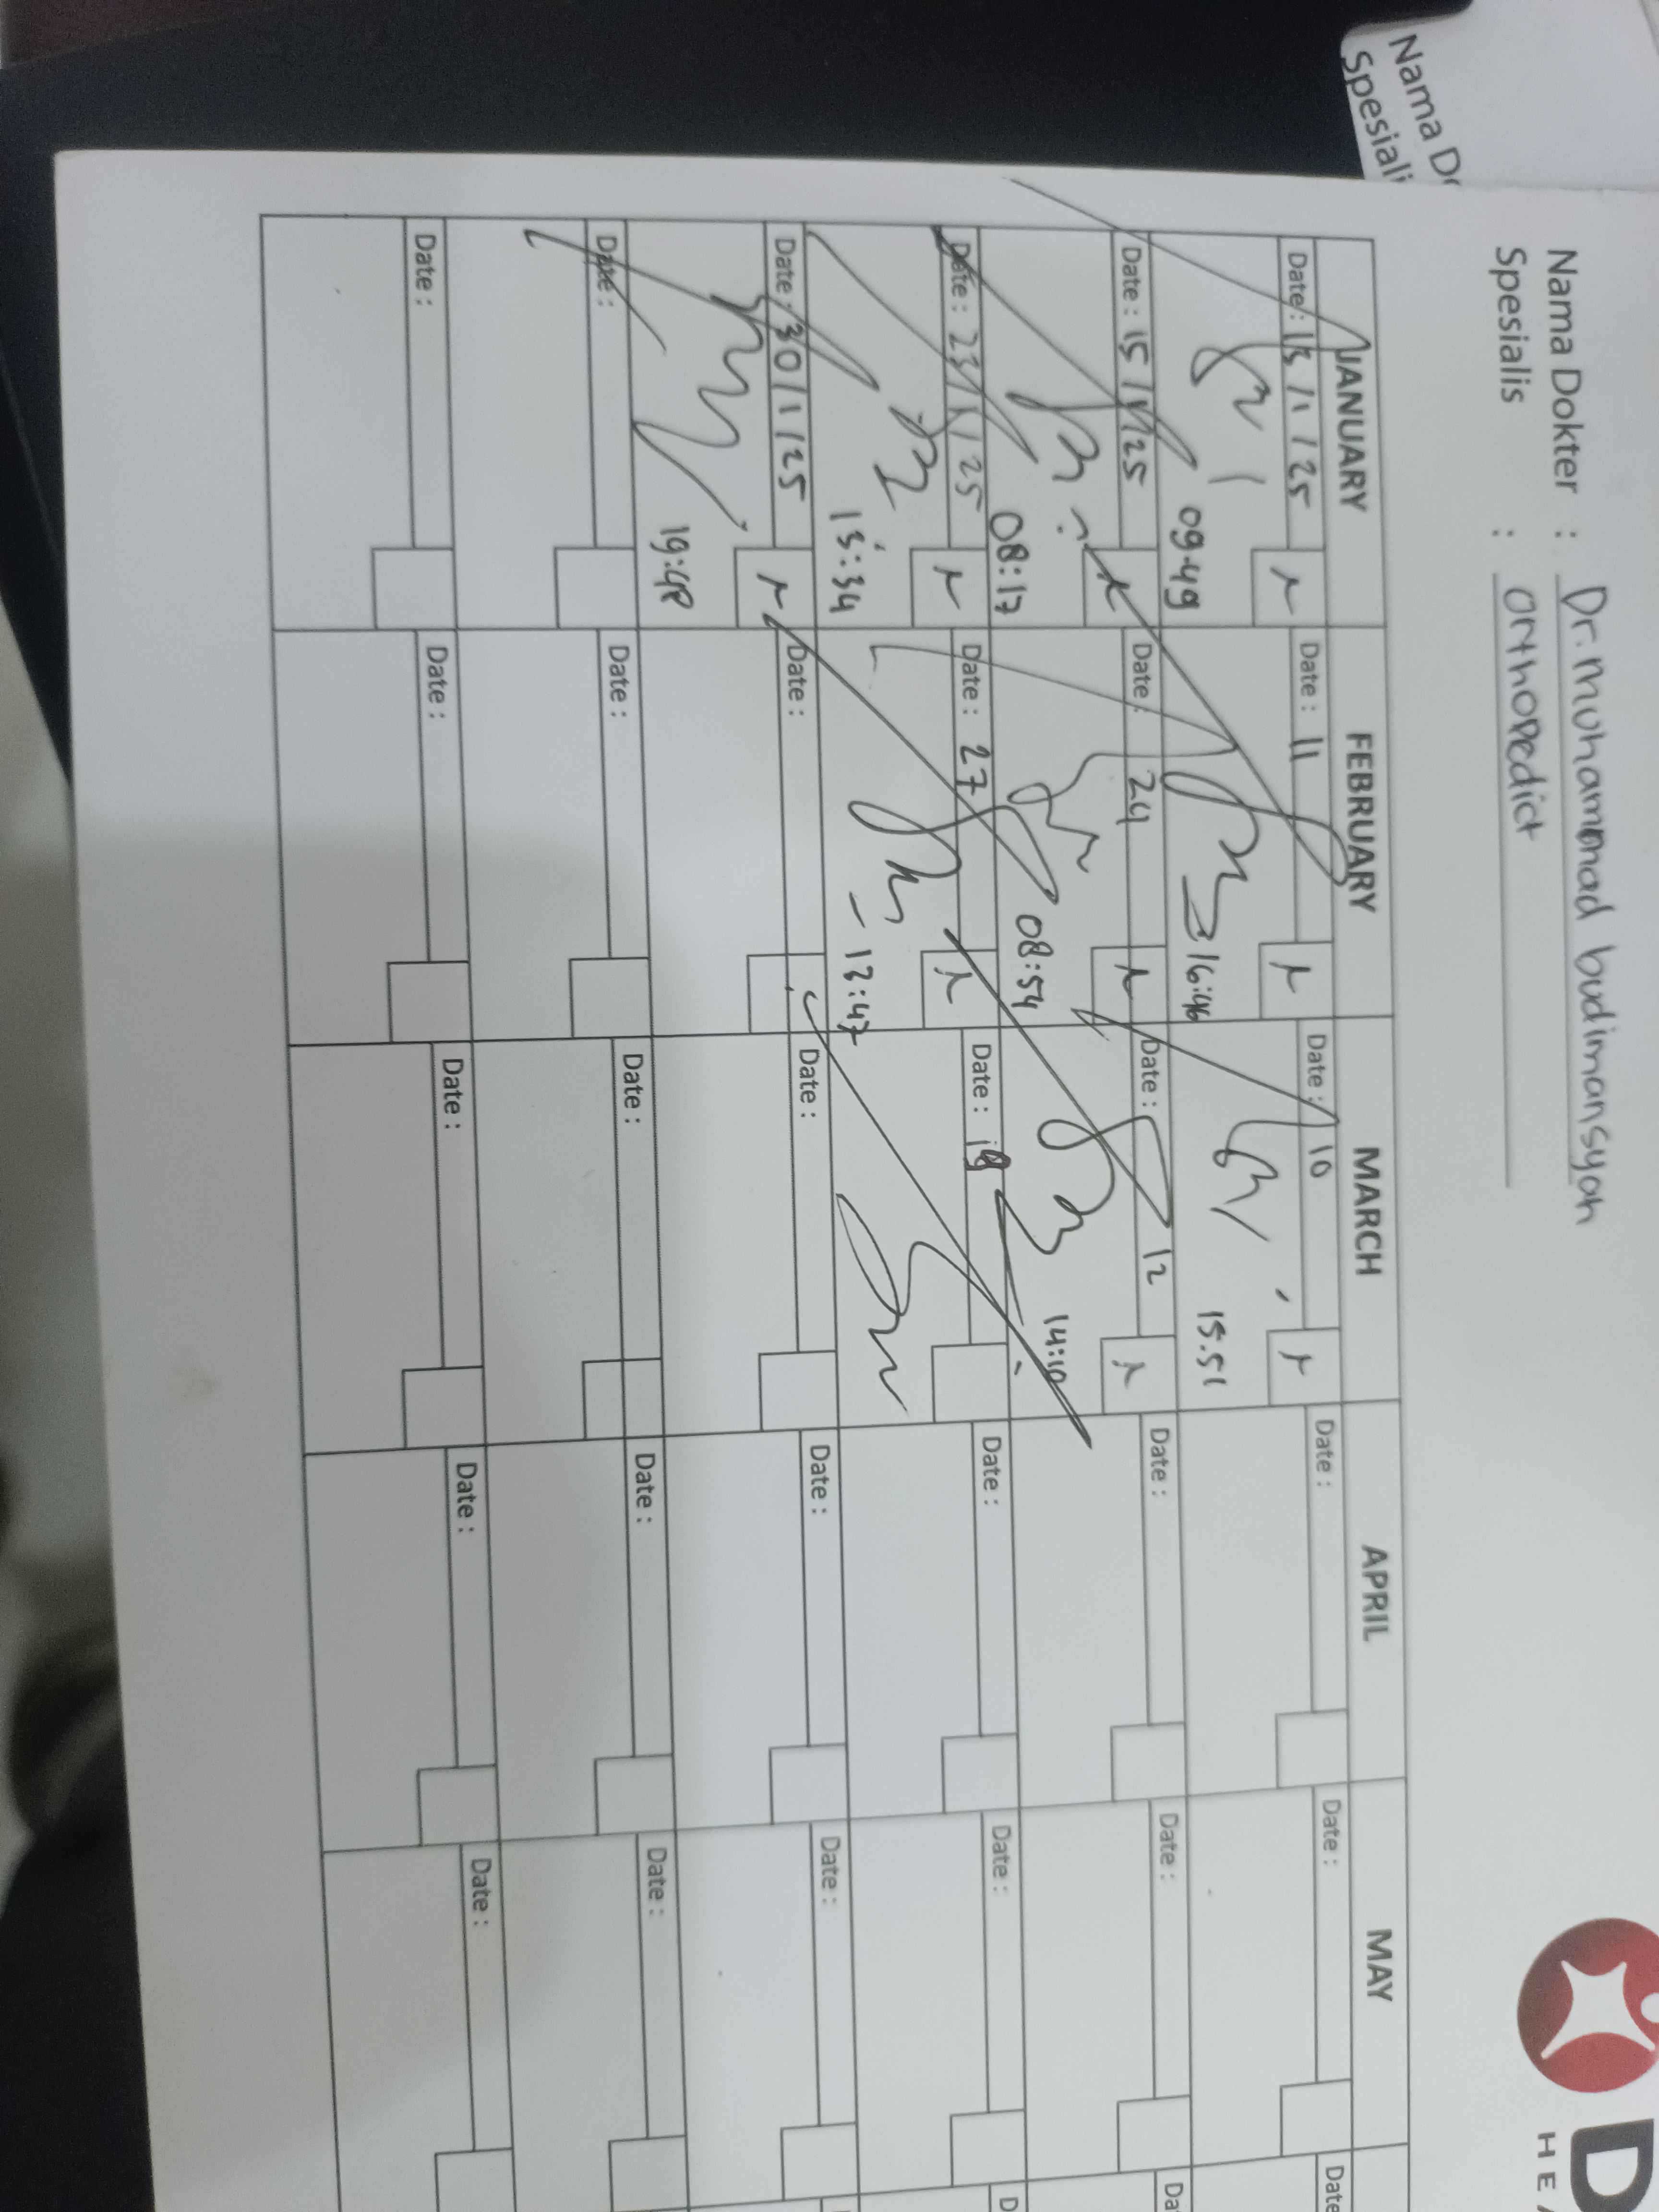 Nama Do
Spesiali
Nama Dokter : Dr. Muhammad budimansyah
Spesialis : Orthopedict
D
HEA
JANUARY FEBRUARY MARCH APRIL MAY
Date : 13/1/25 Date : 11 Date : 10 Date : Date : Date
09.49 16:46 15.51
Date : 15/1/25 Date : 24 Date : 12 Date : Date : Da
08:17 08:54 14:10
Date : 23/1/25 Date : 27 Date : Date : Date : D
13:34 13:47
Date : 30/1/25 Date : Date : Date : Date :
19:48
Date : Date : Date : Date : Date :
Date : Date : Date : Date : Date :